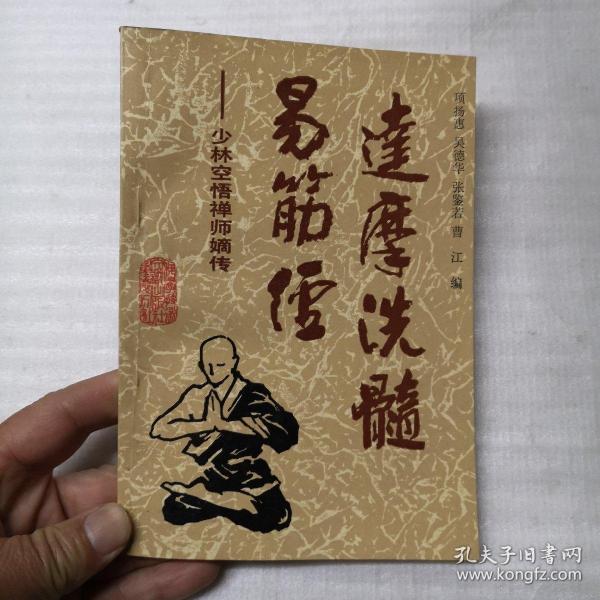 项扬惠 吴德华 张鉴若 曹江 编
達摩洗髓
易筋经
——少林空悟禅师嫡传
孔夫子旧书网
www.kongfz.com